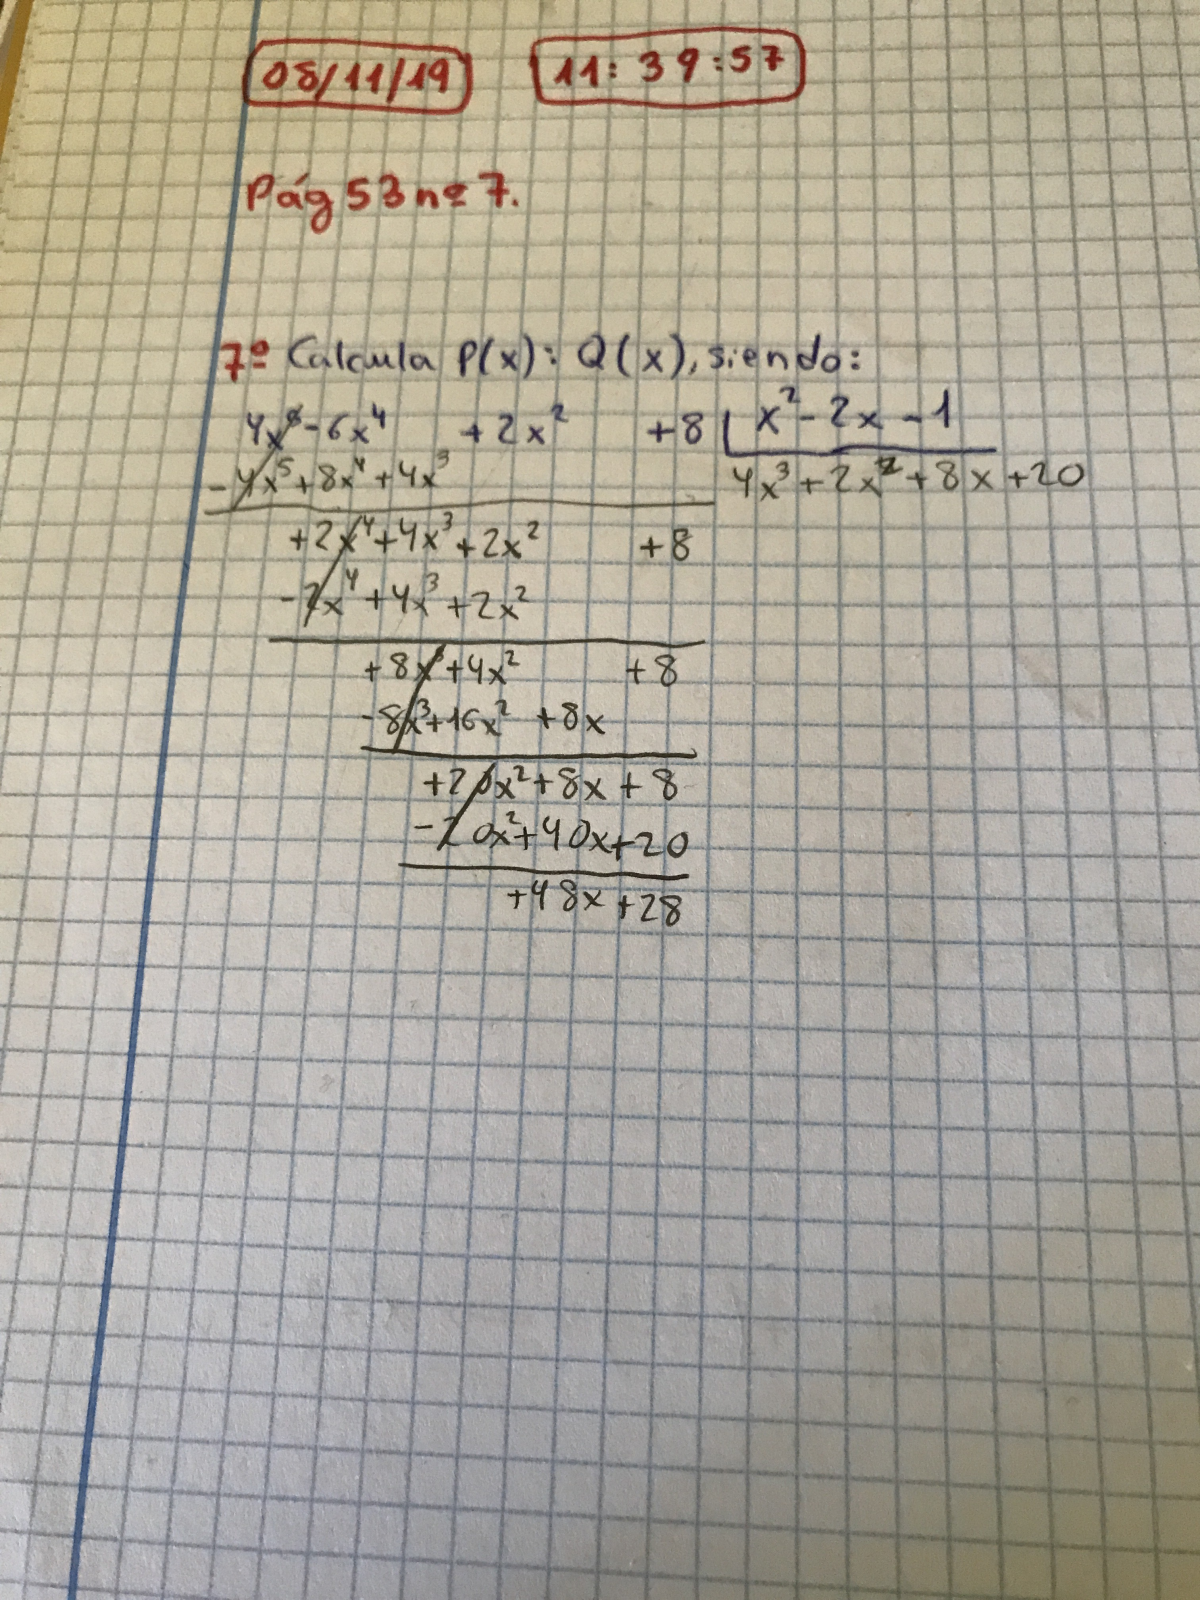 08/11/19 11:39:57
Pág 53 nº 7.
7º Calcula P(x): Q(x), siendo:
4x⁵-6x⁴ +2x² +8 x²-2x-1
-4x⁵+8x⁴+4x³ 4x³+2x²+8x+20
+2x⁴+4x³+2x² +8
-2x⁴+4x³+2x²
+8x³+4x² +8
-8x³+16x² +8x
+20x²+8x+8
-20x²+40x+20
+48x+28